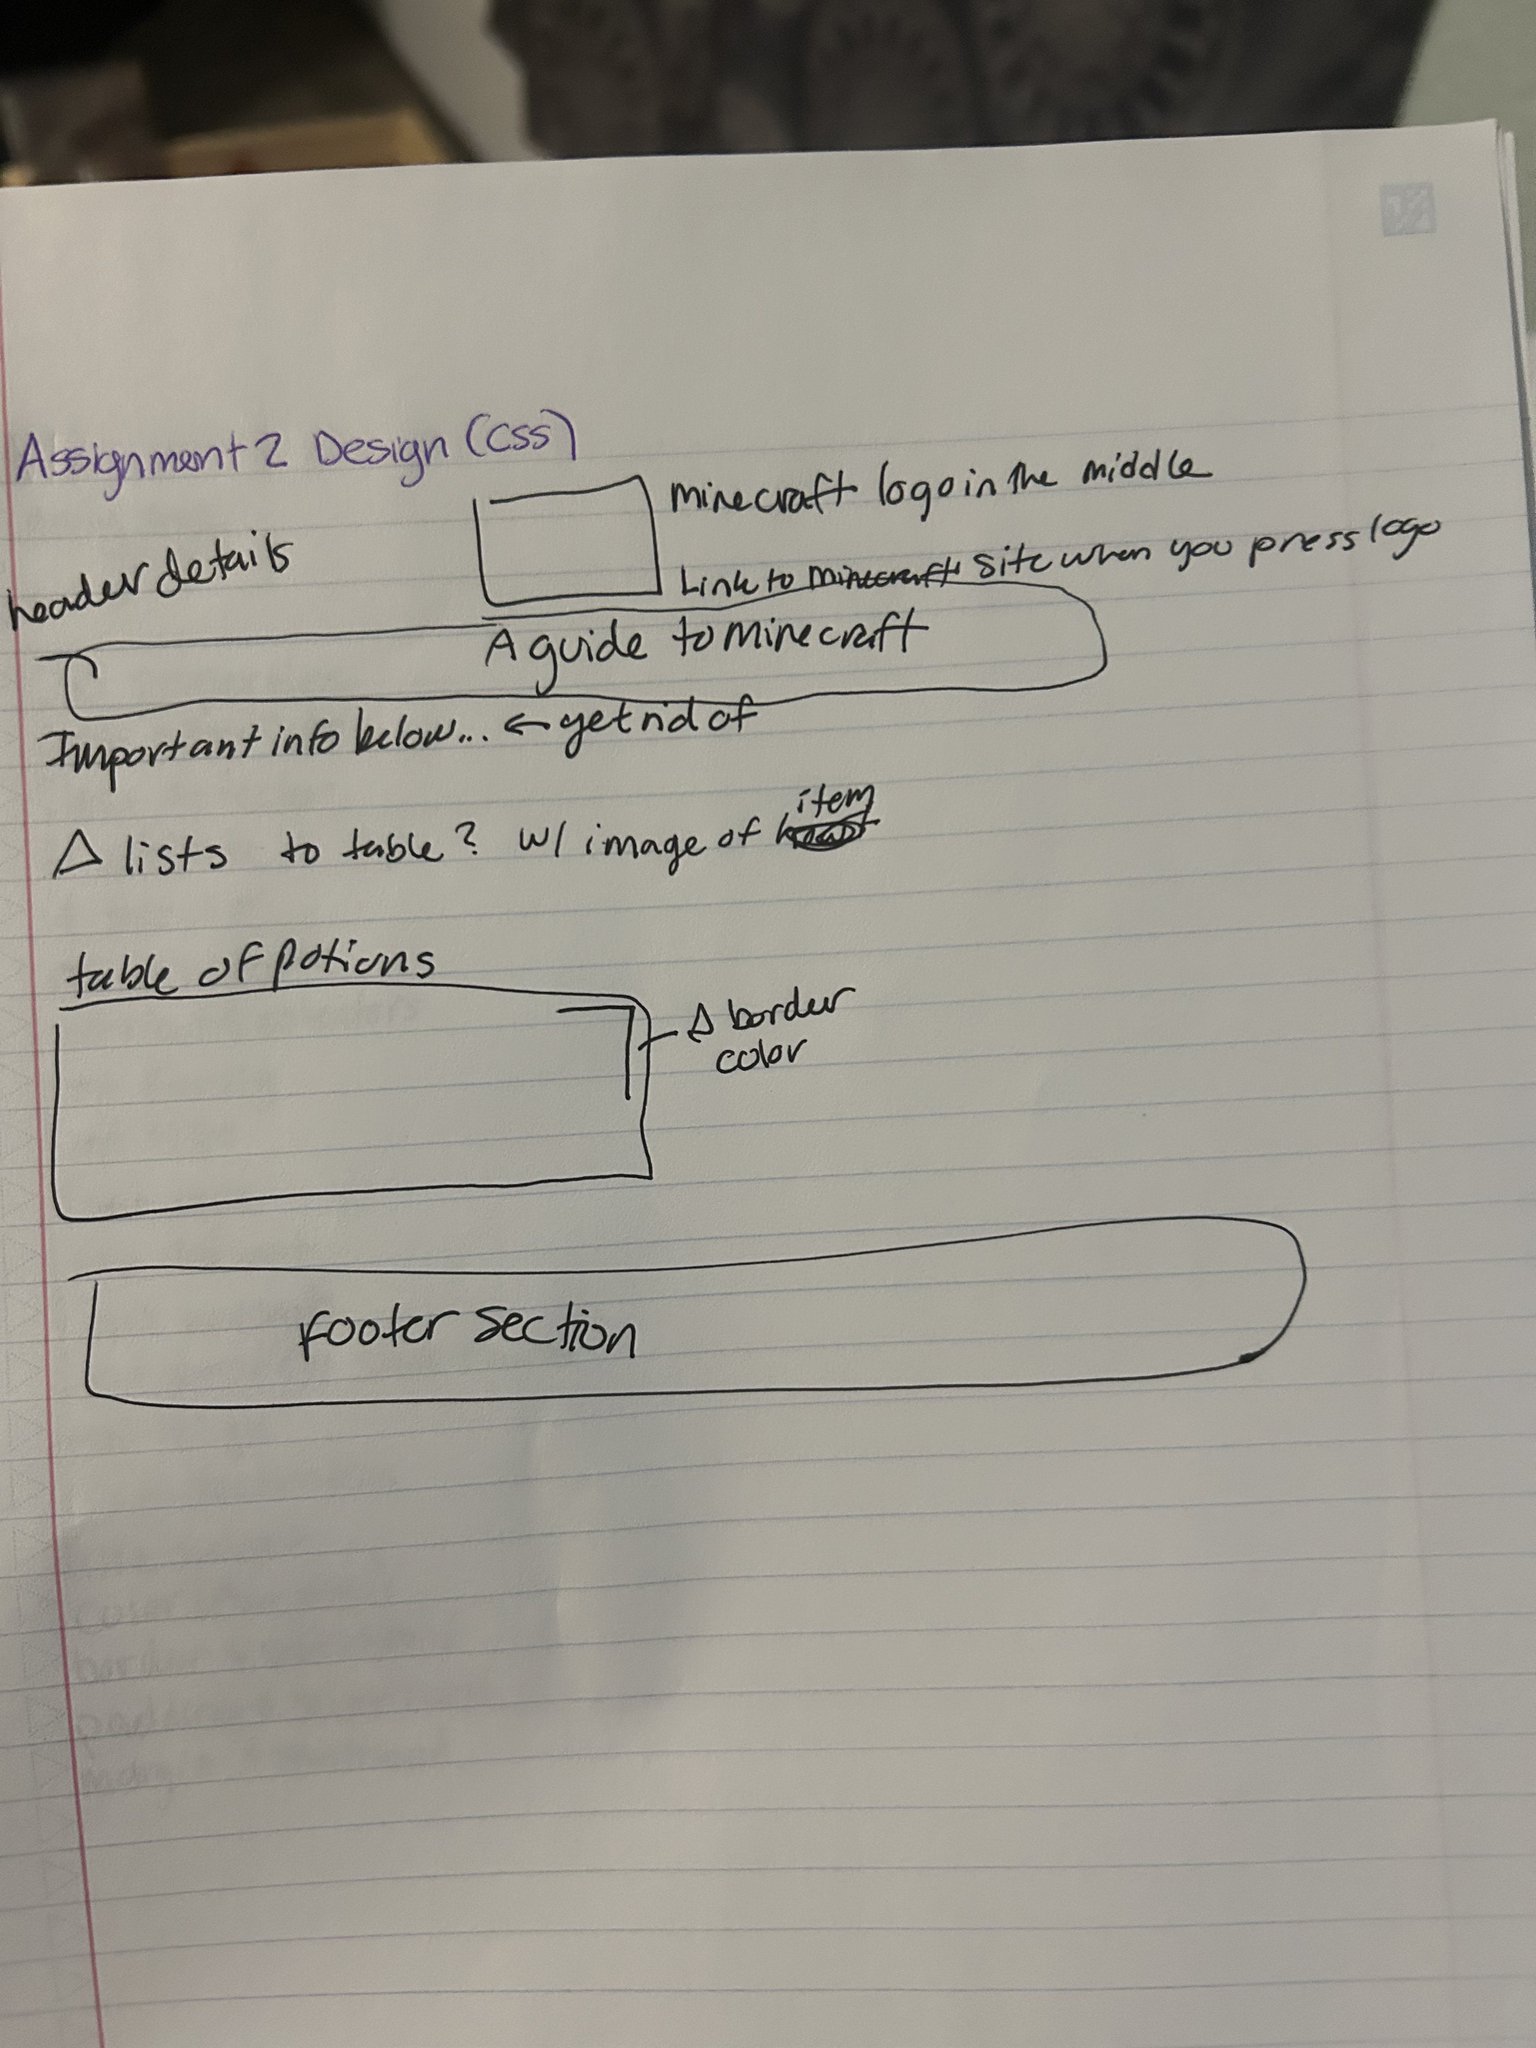 Assignment 2 Design (CSS)
minecraft logo in the middle
header details
Link to minecraft site when you press logo
A guide to minecraft
Important info below... ← get rid of
Δ lists to table? w/ image of item
table of potions
Δ border
color
Footer section